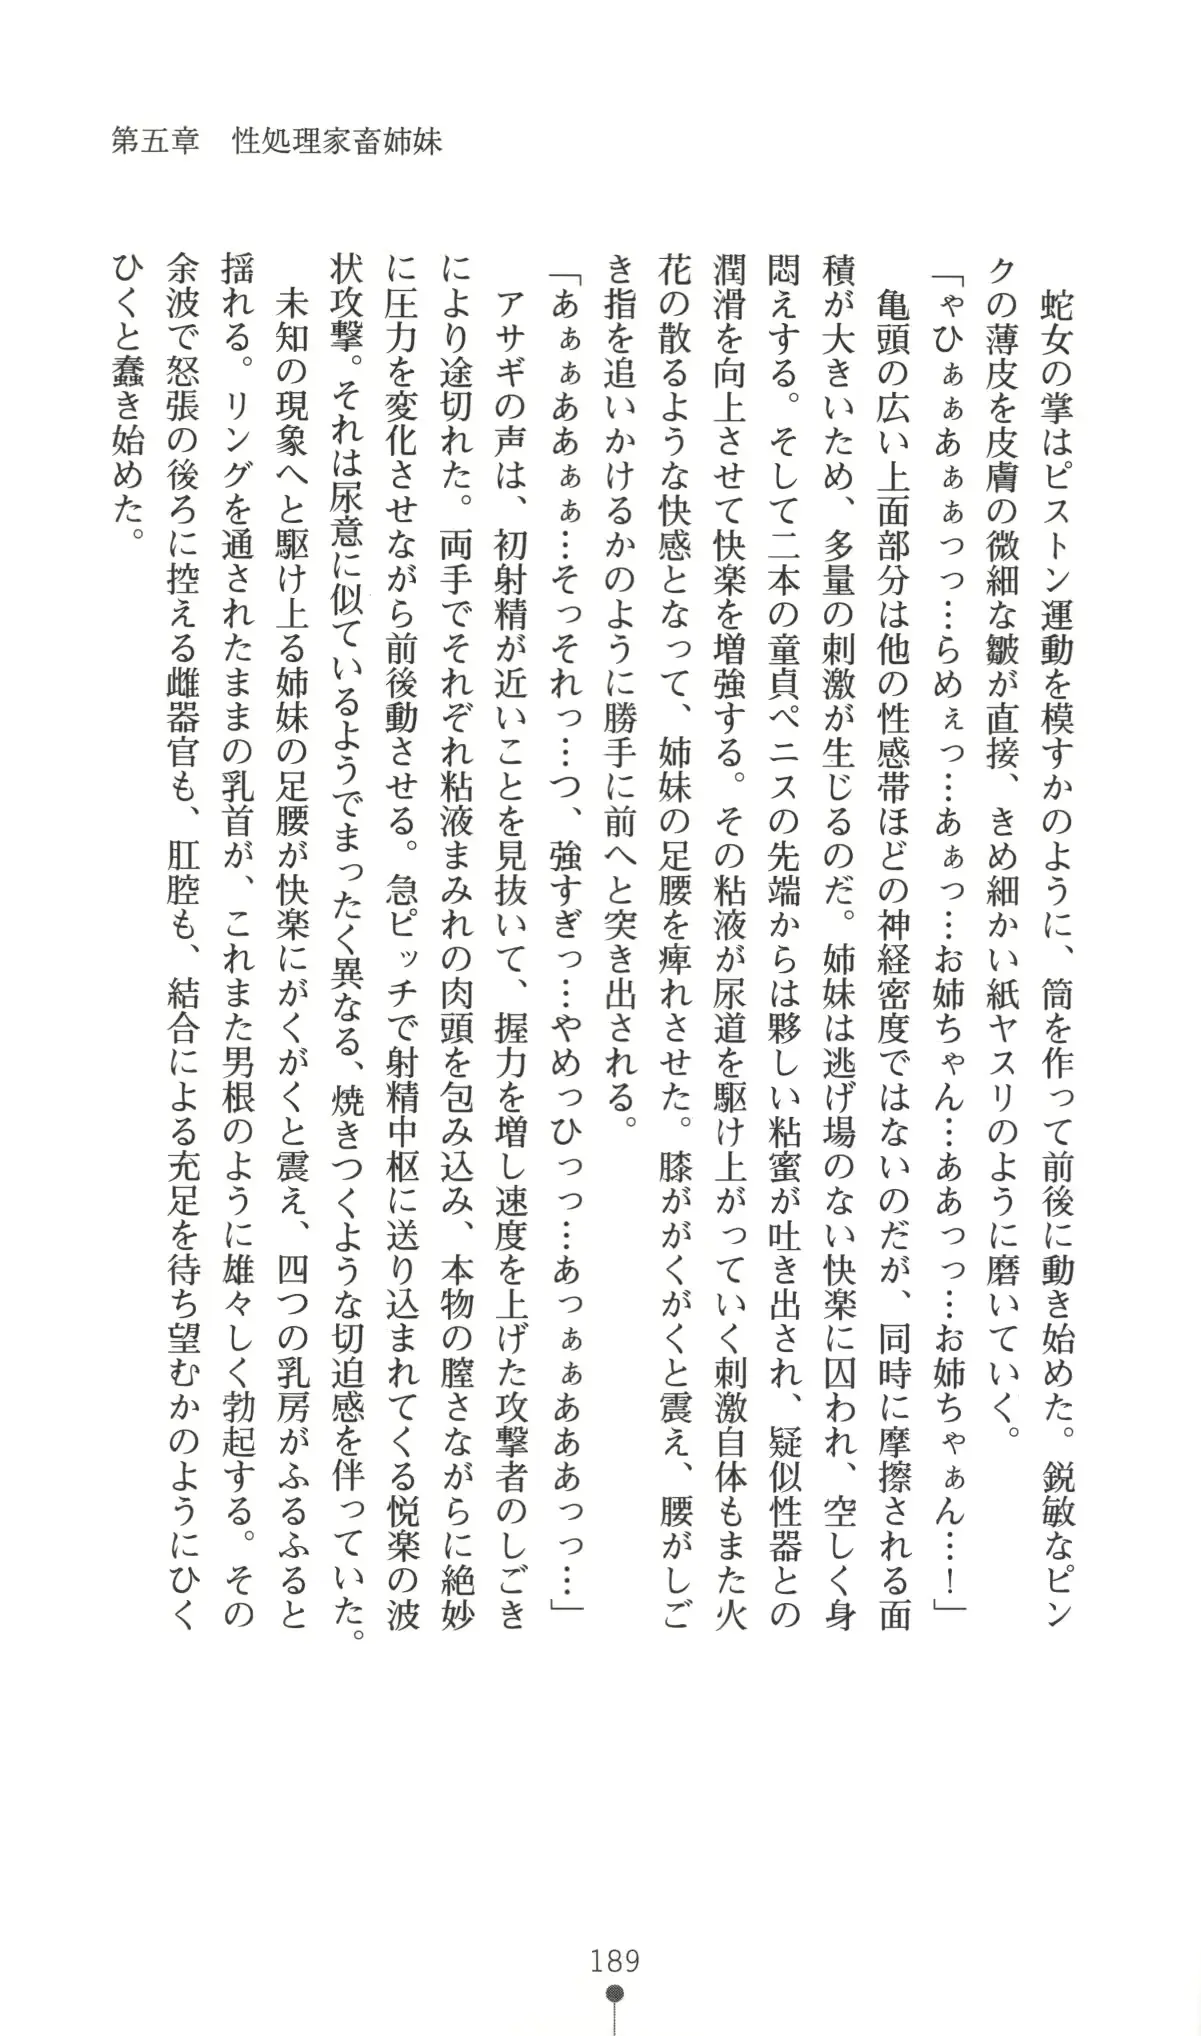 第五章　性処理家畜姉妹
蛇女の掌はピストン運動を模すかのように、筒を作って前後に動き始めた。鋭敏なピン
クの薄皮を皮膚の微細な皺が直接、きめ細かい紙ヤスリのように磨いていく。
「ゃひぁぁあぁぁっっ…らめぇっ…あぁっ…お姉ちゃん…ああっっ…お姉ちゃぁん…！」
亀頭の広い上面部分は他の性感帯ほどの神経密度ではないのだが、同時に摩擦される面
積が大きいため、多量の刺激が生じるのだ。姉妹は逃げ場のない快楽に囚われ、空しく身
悶えする。そして二本の童貞ペニスの先端からは夥しい粘蜜が吐き出され、疑似性器との
潤滑を向上させて快楽を増強する。その粘液が尿道を駆け上がっていく刺激自体もまた火
花の散るような快感となって、姉妹の足腰を痺れさせた。膝ががくがくと震え、腰がしご
き指を追いかけるかのように勝手に前へと突き出される。
「あぁぁああぁぁ…そっそれっ…つ、強すぎっ…やめっひっっ…あっぁぁあああっっ…」
アサギの声は、初射精が近いことを見抜いて、握力を増し速度を上げた攻撃者のしごき
により途切れた。両手でそれぞれ粘液まみれの肉頭を包み込み、本物の膣さながらに絶妙
に圧力を変化させながら前後動させる。急ピッチで射精中枢に送り込まれてくる悦楽の波
状攻撃。それは尿意に似ているようでまったく異なる、焼きつくような切迫感を伴っていた。
未知の現象へと駆け上る姉妹の足腰が快楽にがくがくと震え、四つの乳房がふるふると
揺れる。リングを通されたままの乳首が、これまた男根のように雄々しく勃起する。その
余波で怒張の後ろに控える雌器官も、肛腔も、結合による充足を待ち望むかのようにひく
ひくと蠢き始めた。
189